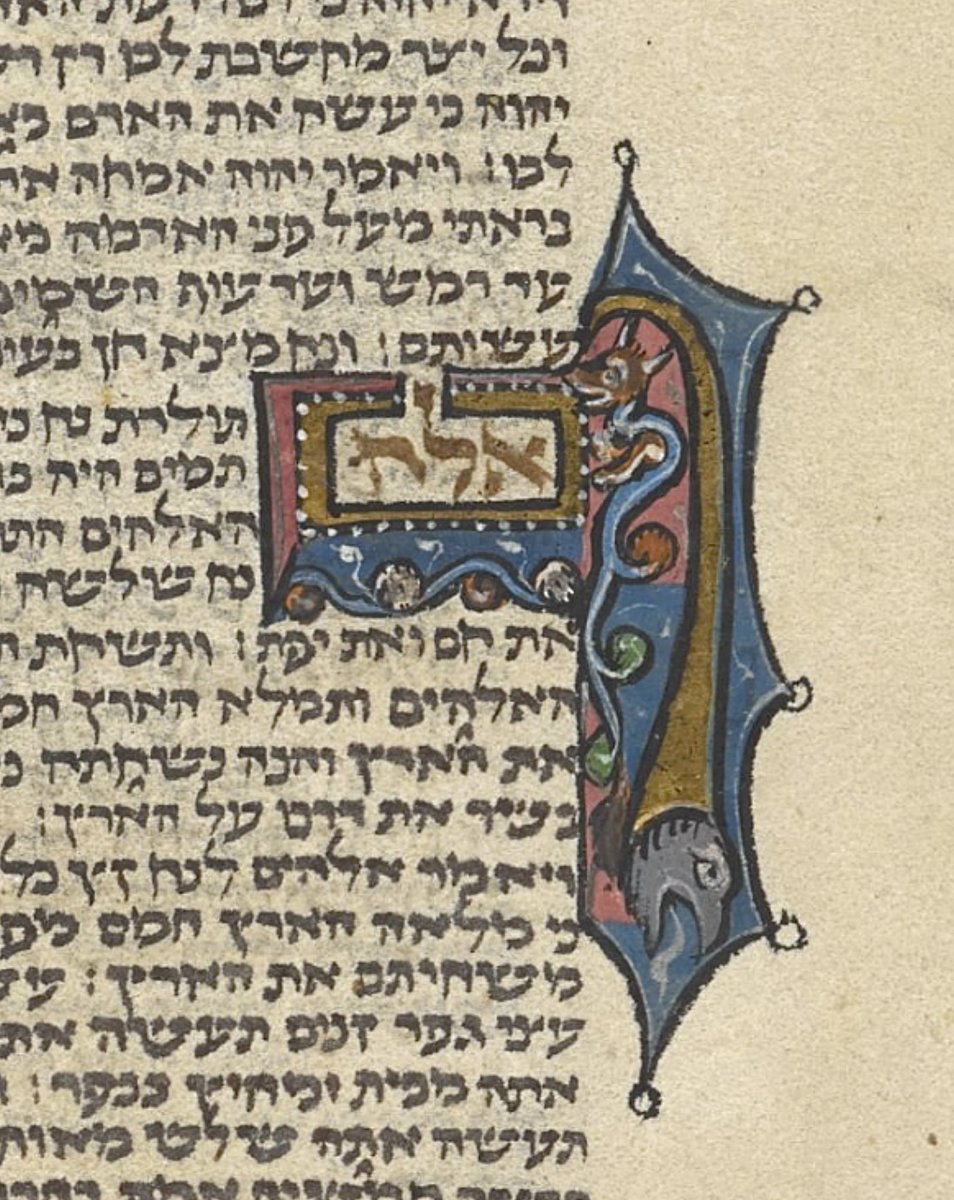 וכל יצר מחשבת לבו רק
יהוה כי עשה את האדם
לבו׃ ויאמר יהוה אמחה את
בראתי מעל פני האדמה
עד רמש ועד עוף השמים
עשיתם׃ ונח מצא חן
אלה
תולדת נח
תמים היה
האלהים
נח שלשה
את חם ואת יפת׃ ותשחת
האלהים ותמלא הארץ חמס
את הארץ והנה נשחתה
בשר את דרכו על הארץ׃
ויאמר אלהים לנח קץ כל
כי מלאה הארץ חמס
משחיתם את הארץ׃
עצי גפר קנים תעשה את
אתה מבית ומחוץ בכפר׃
תעשה אתה שלש מאות